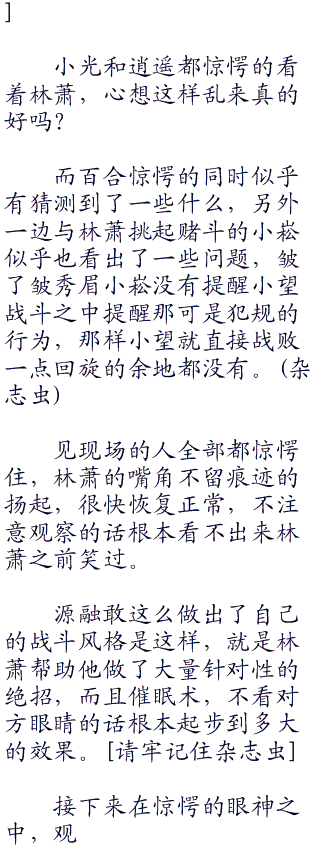 ]
小光和逍遥都惊愕的看
着林萧，心想这样乱来真的
好吗？
而百合惊愕的同时似乎
有猜测到了一些什么，另外
一边与林萧挑起赌斗的小菘
似乎也看出了一些问题，皱
了皱秀眉小菘没有提醒小望
战斗之中提醒那可是犯规的
行为，那样小望就直接战败
一点回旋的余地都没有。(杂
志虫)
见现场的人全部都惊愕
住，林萧的嘴角不留痕迹的
扬起，很快恢复正常，不注
意观察的话根本看不出来林
萧之前笑过。
源融敢这么做出了自己
的战斗风格是这样，就是林
萧帮助他做了大量针对性的
绝招，而且催眠术，不看对
方眼睛的话根本起步到多大
的效果。[请牢记住杂志虫]
接下来在惊愕的眼神之
中，观